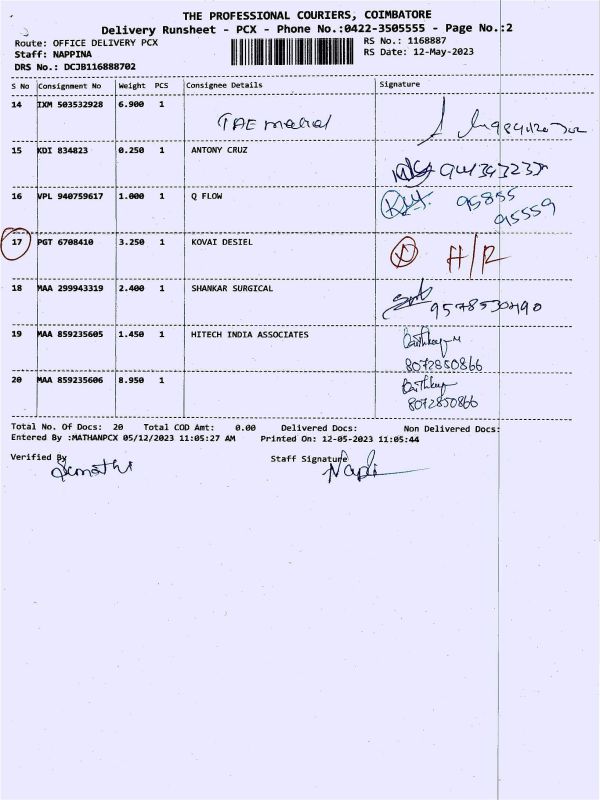 THE PROFESSIONAL COURIERS, COIMBATORE
Delivery Runsheet - PCX - Phone No.:0422-3505555 - Page No.:2
Route: OFFICE DELIVERY PCX
RS No.: 1168887
Staff: NAPPINA
RS Date: 12-May-2023
DRS No.: DCJB116888702
S No Consignment No Weight PCS Consignee Details Signature
14 IXM 503532928 6.900 1
15 KDI 834823 0.250 1 ANTONY CRUZ
16 VPL 940759617 1.000 1 Q FLOW 95855
95559
17 PGT 6708410 3.250 1 KOVAI DESIEL H/R
18 MAA 299943319 2.400 1 SHANKAR SURGICAL
19 MAA 859235605 1.450 1 HITECH INDIA ASSOCIATES
8072850866
20 MAA 859235606 8.950 1
8072850866
Total No. Of Docs: 20 Total COD Amt: 0.00 Delivered Docs: Non Delivered Docs:
Entered By :MATHANPCX 05/12/2023 11:05:27 AM Printed On: 12-05-2023 11:05:44
Verified By
Staff Signature